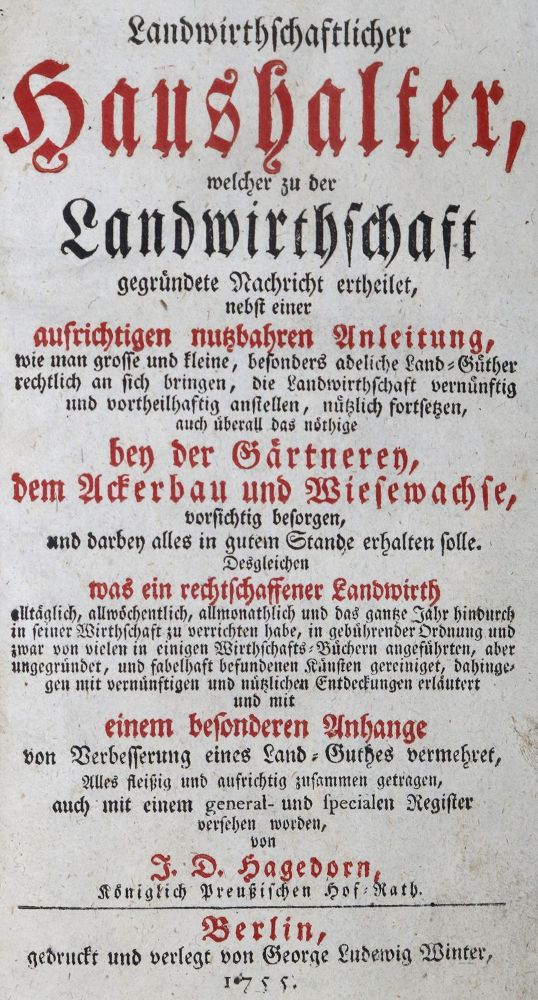 Landwirthschaftlicher
Haushalter,
welcher zu der
Landwirthschaft
gegründete Nachricht ertheilet,
nebst einer
aufrichtigen nutzbahren Anleitung,
wie man grosse und kleine, besonders adeliche Land-Güther
rechtlich an sich bringen, die Landwirthschaft vernünftig
und vortheilhaftig anstellen, nützlich fortsetzen,
auch überall das nöthige
bey der Gärtnerey,
dem Ackerbau und Wiesewachse,
vorsichtig besorgen,
und darbey alles in gutem Stande erhalten solle.
Desgleichen
was ein rechtschaffener Landwirth
alltäglich, allwöchentlich, allmonathlich und das gantze Jahr hindurch
in seiner Wirthschaft zu verrichten habe, in gebührender Ordnung und
zwar von vielen in einigen Wirthschafts-Büchern angeführten, aber
ungegründet, und fabelhaft befundenen Künsten gereiniget, dahinge-
gen mit vernünftigen und nützlichen Entdeckungen erläutert
und mit
einem besonderen Anhange
von Verbesserung eines Land-Guthes vermehret,
Alles fleißig und aufrichtig zusammen getragen,
auch mit einem general- und specialen Register
versehen worden,
von
J. D. Hagedorn,
Königlich Preußischen Hof-Rath.
Berlin,
gedruckt und verlegt von George Ludewig Winter,
1755.